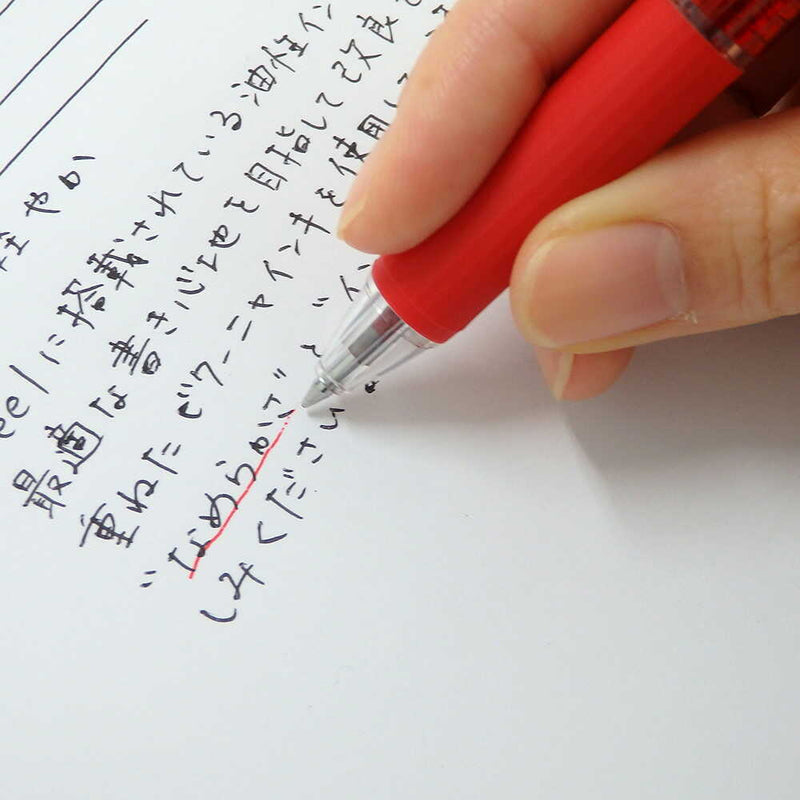 軽やか
eelに搭載されている油性イン
最適な書き心地を目指して改良
重ねたビクーニャインキを使用し
"なめらかさ"と"イン
しみください